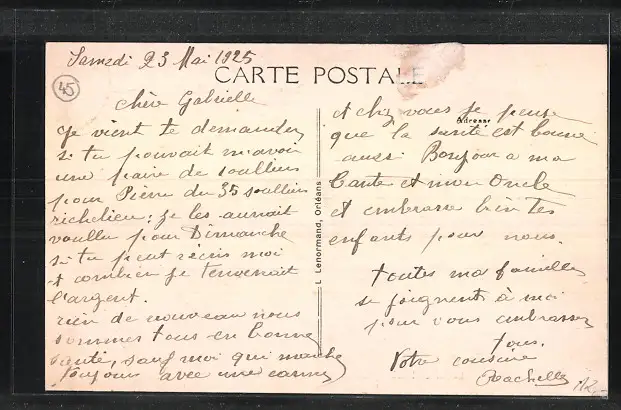 Samedi 23 Mai 1925
CARTE POSTALE
45
chère Gabrielle
Je vient te demander
si tu pouvait m'avoir
une paire de soulliers
pour Pierre du 35 soulliers
richelieu; je les aurrait
voullu pour Dimanche
si tu peut récris moi
et combien je t'enverrait
l'argent.
rien de nouveau nous
sommes tous en bonne
santé, sauf moi qui marche
toujours avec une canne
L. Lenormand, Orléans
Adresse
et chez vous je pense
que la santé est bonne
aussi Bonjour a ma
Tante et mon Oncle
et embrasse bien tes
enfants pour nous.
toutes ma famille
se joignent à moi
pour vous embrasser
tous.
Votre cousine
Rachelle